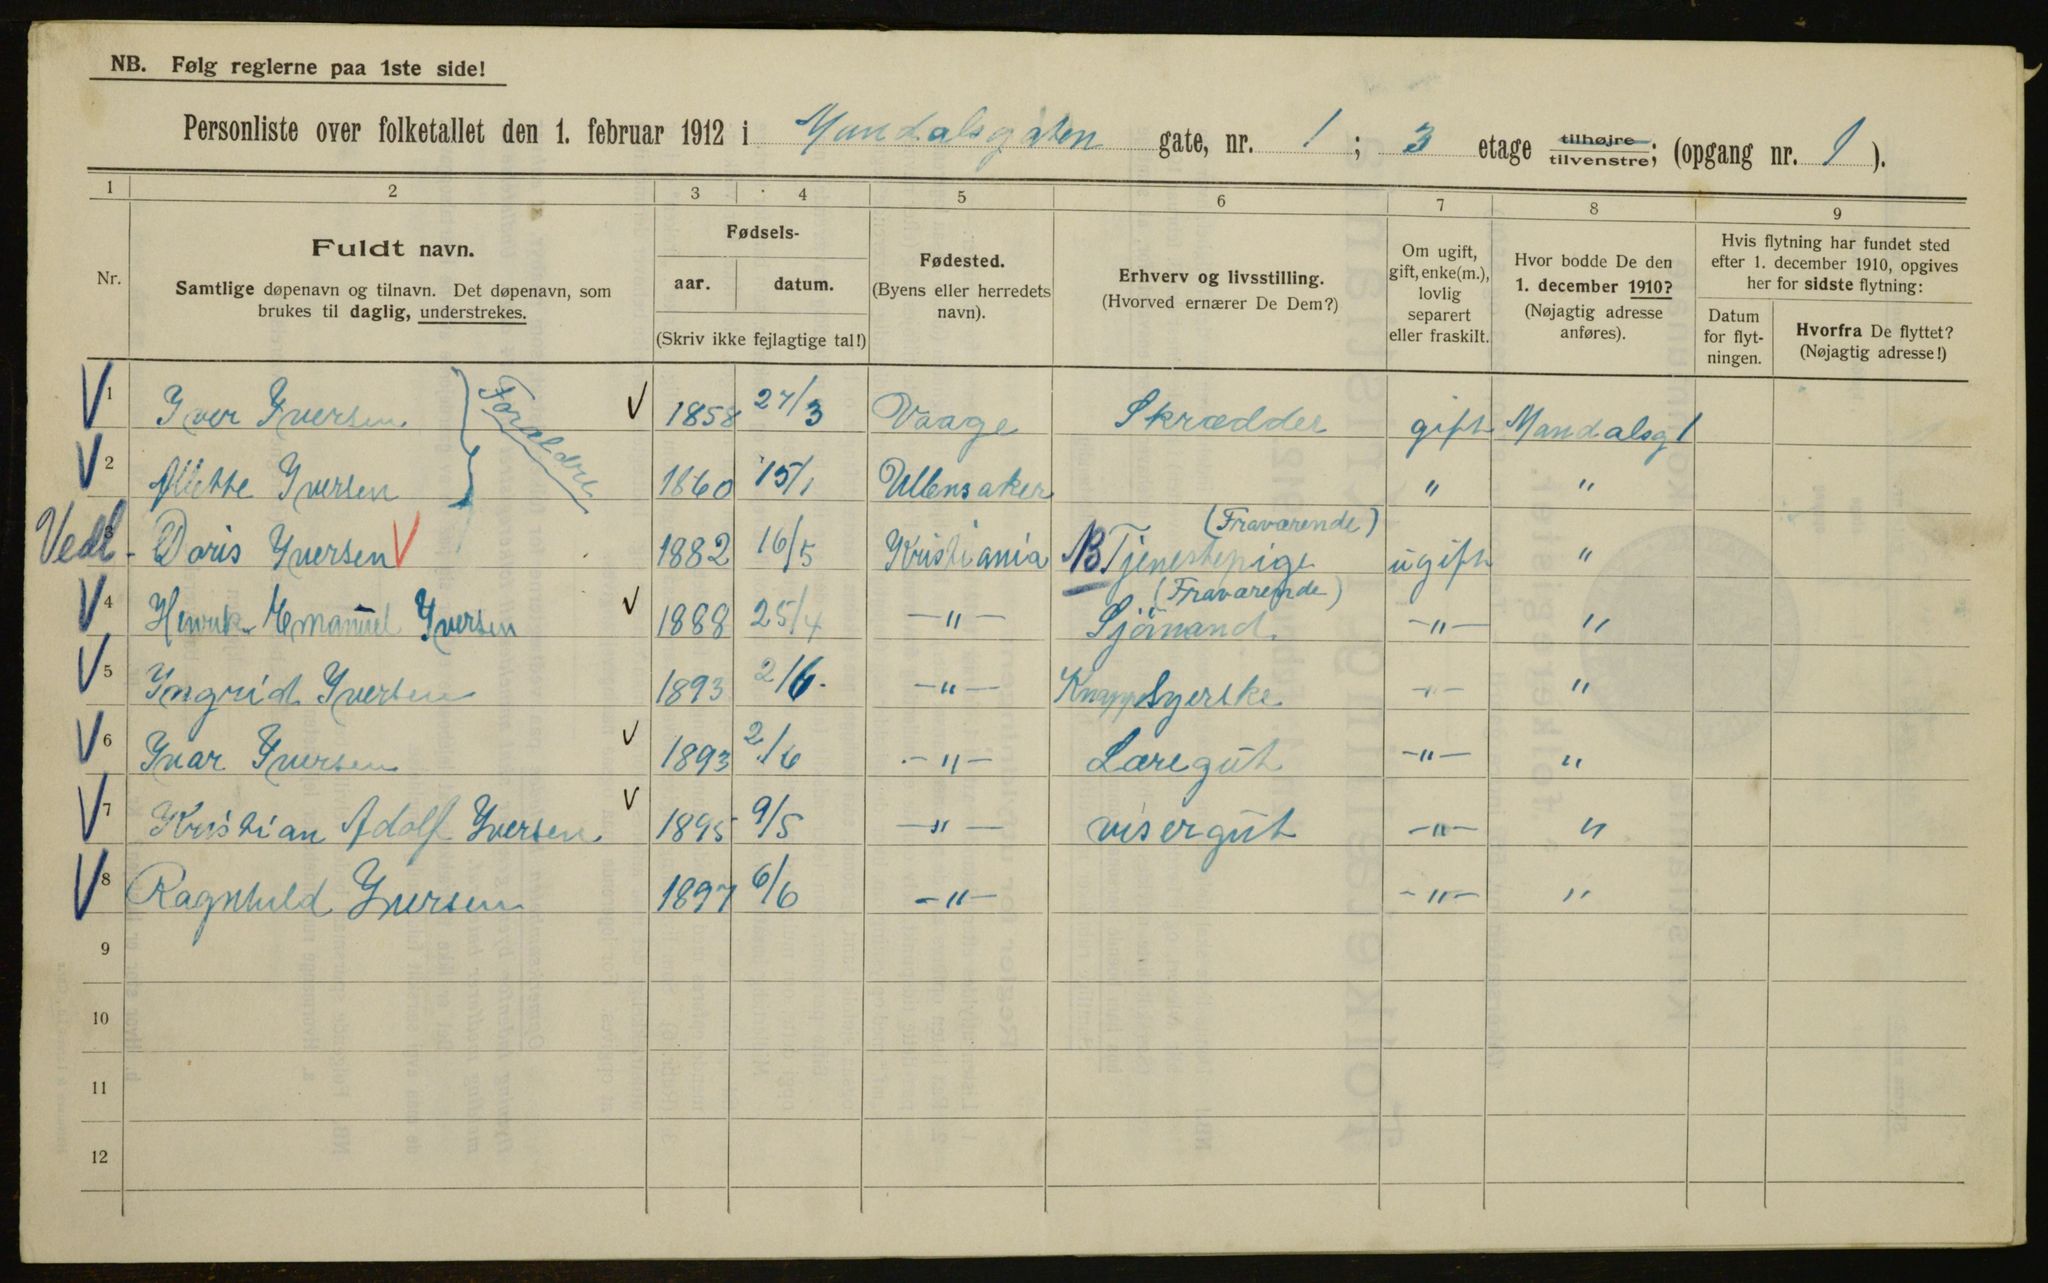 NB. Følg reglerne paa 1ste side!
Personliste over folketallet den 1. februar 1912 i Mandalsgaten gate, nr. 1 ; 3 etage tilhøjre tilvenstre; (opgang nr. 1 ).
1 2 3 4 5 6 7 8 9
Nr.
Fuldt navn.
Samtlige døpenavn og tilnavn. Det døpenavn, som
brukes til daglig, understrekes.
Fødsels-
aar. datum.
(Skriv ikke fejlagtige tal!)
Fødested.
(Byens eller herredets
navn).
Erhverv og livsstilling.
(Hvorved ernærer De Dem?)
Om ugift,
gift, enke(m.),
lovlig
separert
eller fraskilt.
Hvor bodde De den
1. december 1910?
(Nøjagtig adresse
anføres).
Hvis flytning har fundet sted
efter 1. december 1910, opgives
her for sidste flytning:
Datum
for flyt-
ningen.
Hvorfra De flyttet?
(Nøjagtig adresse!)
V 1 Iver Iversen } Forældre V 1858 27/3 Vaage Skrædder gift Mandalsg 1
V 2 Iversen 1860 15/1 Ullensaker " "
(Fraværende)
Vedl - 3 Doris Iversen V 1882 16/5 Kristiania NB Tjenestepige ugift "
(Fraværende)
V 4 Henrik Emanuel Iversen V 1888 25/4 —"— Sjömand —"— "
V 5 Ingrid Iversen 1893 2/6. —"— Knappsyerske —"— "
V 6 Ivar Iversen V 1893 2/6 —"— Læregut —"— "
V 7 Kristian Adolf Iversen V 1895 9/5 —"— visergut —"— "
V 8 Ragnhild Iversen 1897 6/6 —"— —"— "
9
10
11
12